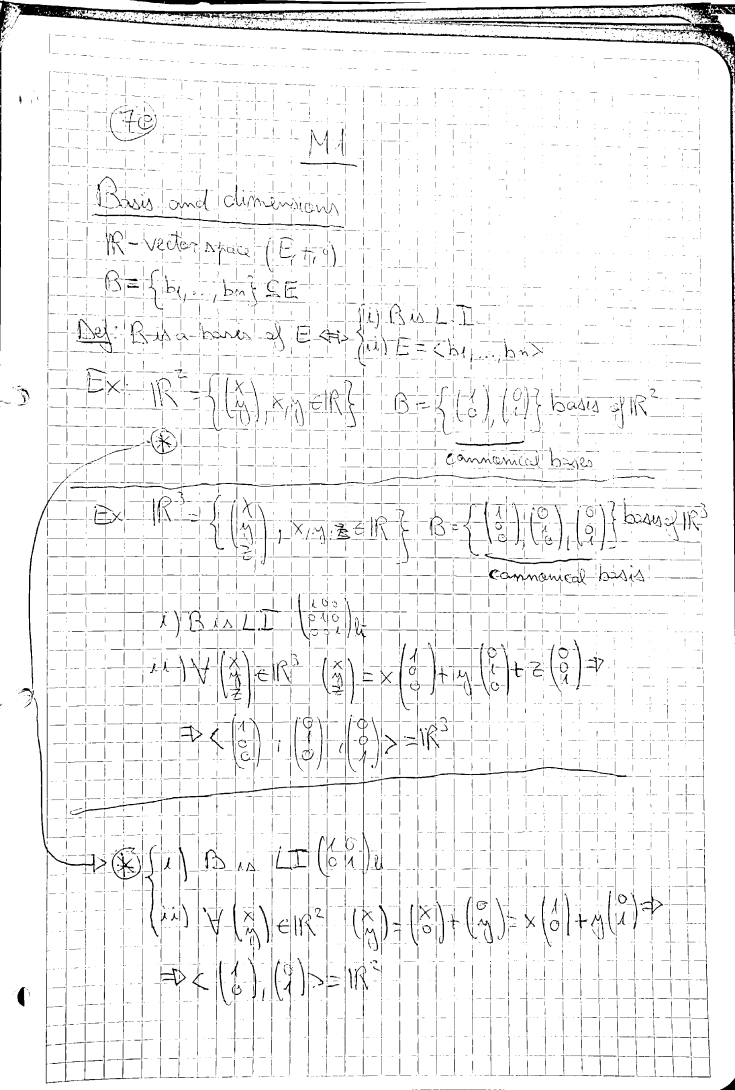 7e
M1
Basis and dimensions
IR-vector space (E, +, ·)
B = {b1, ..., bn} ⊆ E
Def: B is a bases of E ⇔ { i) B is L.I
ii) E = <b1, ..., bn>
Ex: IR² = { (x y), x, y ∈ IR } B = { (1 0), (0 1) } basis of IR²
⊛ cannonical bases
Ex IR³ = { (x y z), x, y, z ∈ IR } B = { (1 0 0), (0 1 0), (0 0 1) } basis of IR³
cannonical basis
i) B is LI (1 0 0 / 0 1 0 / 0 0 1) li
ii) ∀ (x y z) ∈ IR³ (x y z) = x (1 0 0) + y (0 1 0) + z (0 0 1) ⇒
⇒ < (1 0 0), (0 1 0), (0 0 1) > = IR³
⊛ { i) B is LI (1 0 / 0 1) li
ii) ∀ (x y) ∈ IR² (x y) = (x 0) + (0 y) = x (1 0) + y (0 1) ⇒
⇒ < (1 0), (0 1) > = IR²